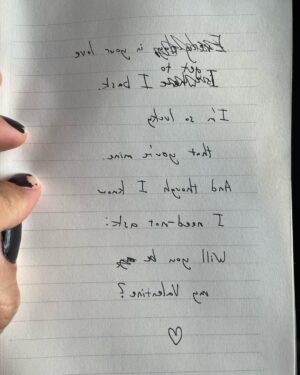 Everyday in your love
I get to bask.
I'm so lucky
that you're mine.
And though I know
I need not ask:
Will you be
my Valentine?